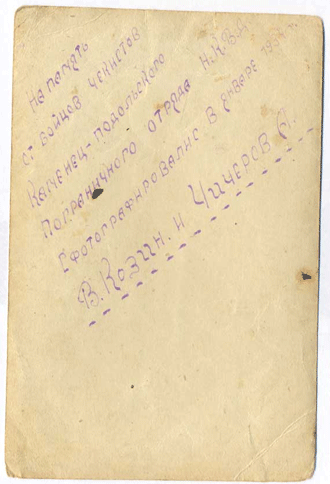 На память
от бойцов чекистов
Каменец-Подольского
Пограничного отряда Н.К.В.Д
Сфотографировались в январе
В. Козин. и Чичеров А.